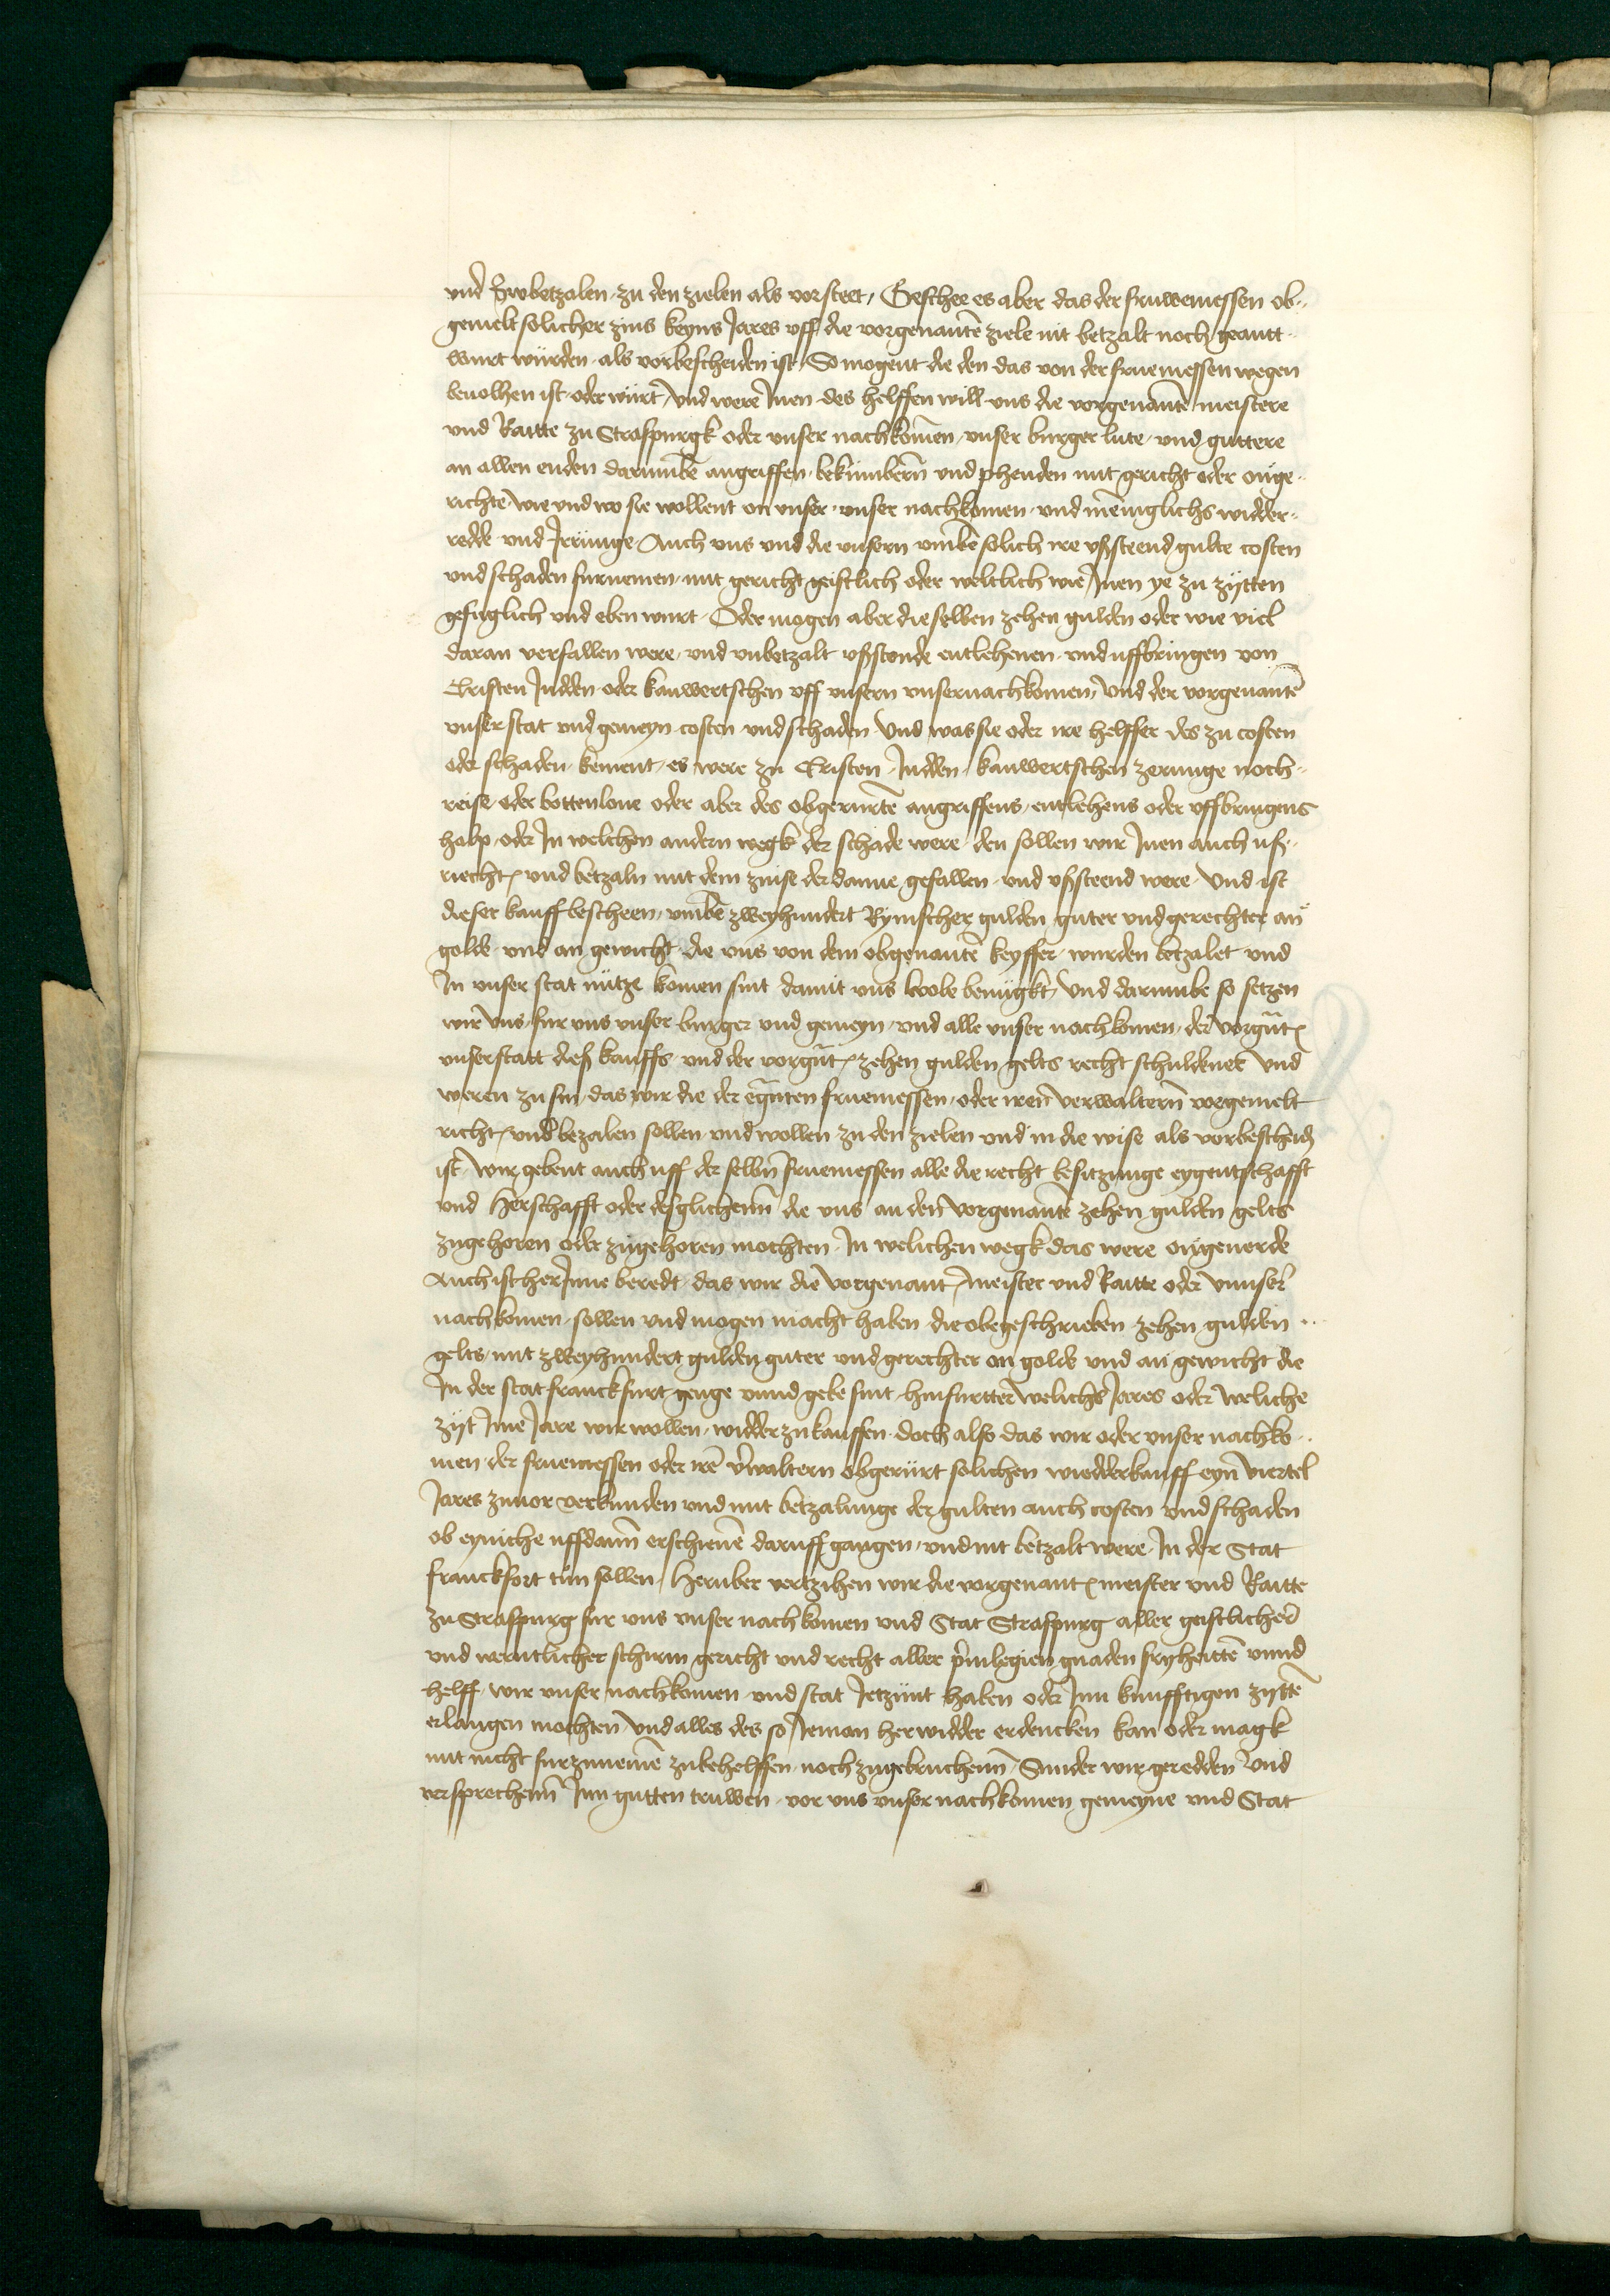 vnd zubetzalen zu den zielen als vorsteet, Geschee es aber das der fruwemessen ob-
gemelt solicher zins keyns Jares vff die vorgenante ziele nit betzalt noch geantt-
wurt würden als vorbescheiden ist, So mogent die den das von der fruemessen wegen
beuolhen ist oder würt, vnd were Inen des helffen will vns die vorgenante meistere
vnd Rattte zu Straspurgk oder vnser nachkomen, vnser burger lute, vnd guttere
an allen enden darumbe angriffen, bekumbern vnd phenden mit gericht oder onge-
richte wie vnd wo sie wollent on vnser, vnser nachkomen, vnd meniglichs widder-
redde vnd Irrunge, Auch vns vnd die vnsern vmbe solich ire vßsteend gulte costen
vnd schaden furnemen, mit gericht geistlich oder weltlich wie Inen ye zu zytten
gefuglich vnd eben wurt, Oder mogen aber dieselben zehen gulden oder wie viel
daran verfallen were, vnd vnbetzalt vßstonde entlehenen, vnd uffbringen von
Cristen Judden oder kauwertschen vff vnsern vnsernachkomen, vnd der vorgenante
vnser stat vnd gemeyn costen vnd schaden Vnd was sie oder ire helffer des zu costen
oder schaden kement, es were zu Cristen, Judden, kauwertschen zerunge noch-
reise, oder bottenlone oder aber des obgerurte angriffens, entlehens oder vffbringens
halp, oder In welchen andern wegk der schade were, den sollen wir Inen auch uß-
riecht, vnd betzaln mit dem zinse der danne gefallen, vnd vßsteend were, Vnd ist
dieser kauff bescheen, vmbe zweyhundert Rynischer gulden, guter vnd gerechter an
golde, vnd an gewicht, die vns von dem obgenante keyffer, wurden betzalet vnd
In vnser stat nütze komen sint damit vns wole benugkt, Vnd darumbe so setzen
wir vns, fur vns vnser burger vnd gemeyn, vnd alle vnser nachkomen, der vorgnt
vnser statt dieß kauffs, vnd der vorgnt, zehen gulden gelts recht schuldener vnd
weren zu sin, das wir die der egnten fruemessen, oder iren verwaltern vorgemelt
richt, vnd bezalen sollen vnd wollen zu den zielen vnd in die wise als vorbescheid
ist, wir gebent auch uff der selbn fruemessen alle die recht besitzunge eygentschafft
vnd Herschafft oder desglichenn die vns an den vorgenante zehen gulden gelts
zugehoren oder zugehoren mochten, In welichen wegk das were ongeuerde
Auch ist herInne beredt, das wir die vorgenant, meister vnd Raitte oder vnnser
nachkomen, sollen vnd mogen macht haben die obegeschrieben zehen gulden
gelts, mit zweyhundert gulden guter vnd gerechter an golde vnd an gewicht die
In der stat franckfurt genge vnnd gebe sint, hinfurtter welichs Jares oder weliche
zyt Ime Jare wir wollen, widder zu kauffen, doch also das wir oder vnser nachko-
men, der fruemessen oder ire verwaltern obgerürt solichen wiedderkauff eyn viertel
Jares zuuor verkunden vnd mit betzalunge der gulten auch costen vnd schaden
ob eyniche uffdann erschiene daruff gangen, vnd nit betzalt were, In der Stat
franckfort tun sollen, Heruber vertzihen wir die vorgenant, meister vnd Raitte
zu Straspurg fur vns vnser nachkomen vnd Stat Straspurg aller geistlicher
vnd werntlicher schirm gericht vnd recht aller priuilegien, gnaden fryheitte vnnd
helff, wir vnser nachkomen vnd stat Jetzunt haben oder Inn kunfftigen zytte
erlangen mochten, Vnd alles des so Jeman herwidder erdencken kan oder magk
mit nicht furzuneme zubehelffen, noch zugebruchenn, Sunder wir geredden vnd
versprechenn Inn gutten truwen, vor vns vnser nachkomen gemeyne vnd Stat